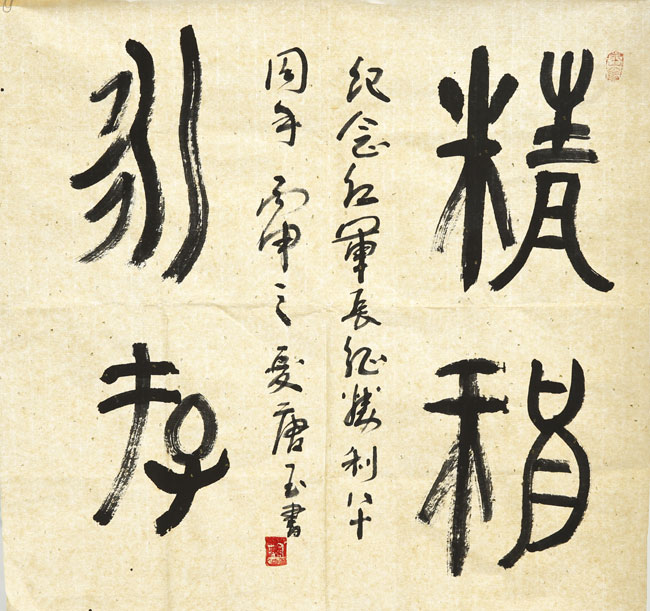 精神
纪念红軍長征勝利八十
周年 丙申之夏唐玉書
永存